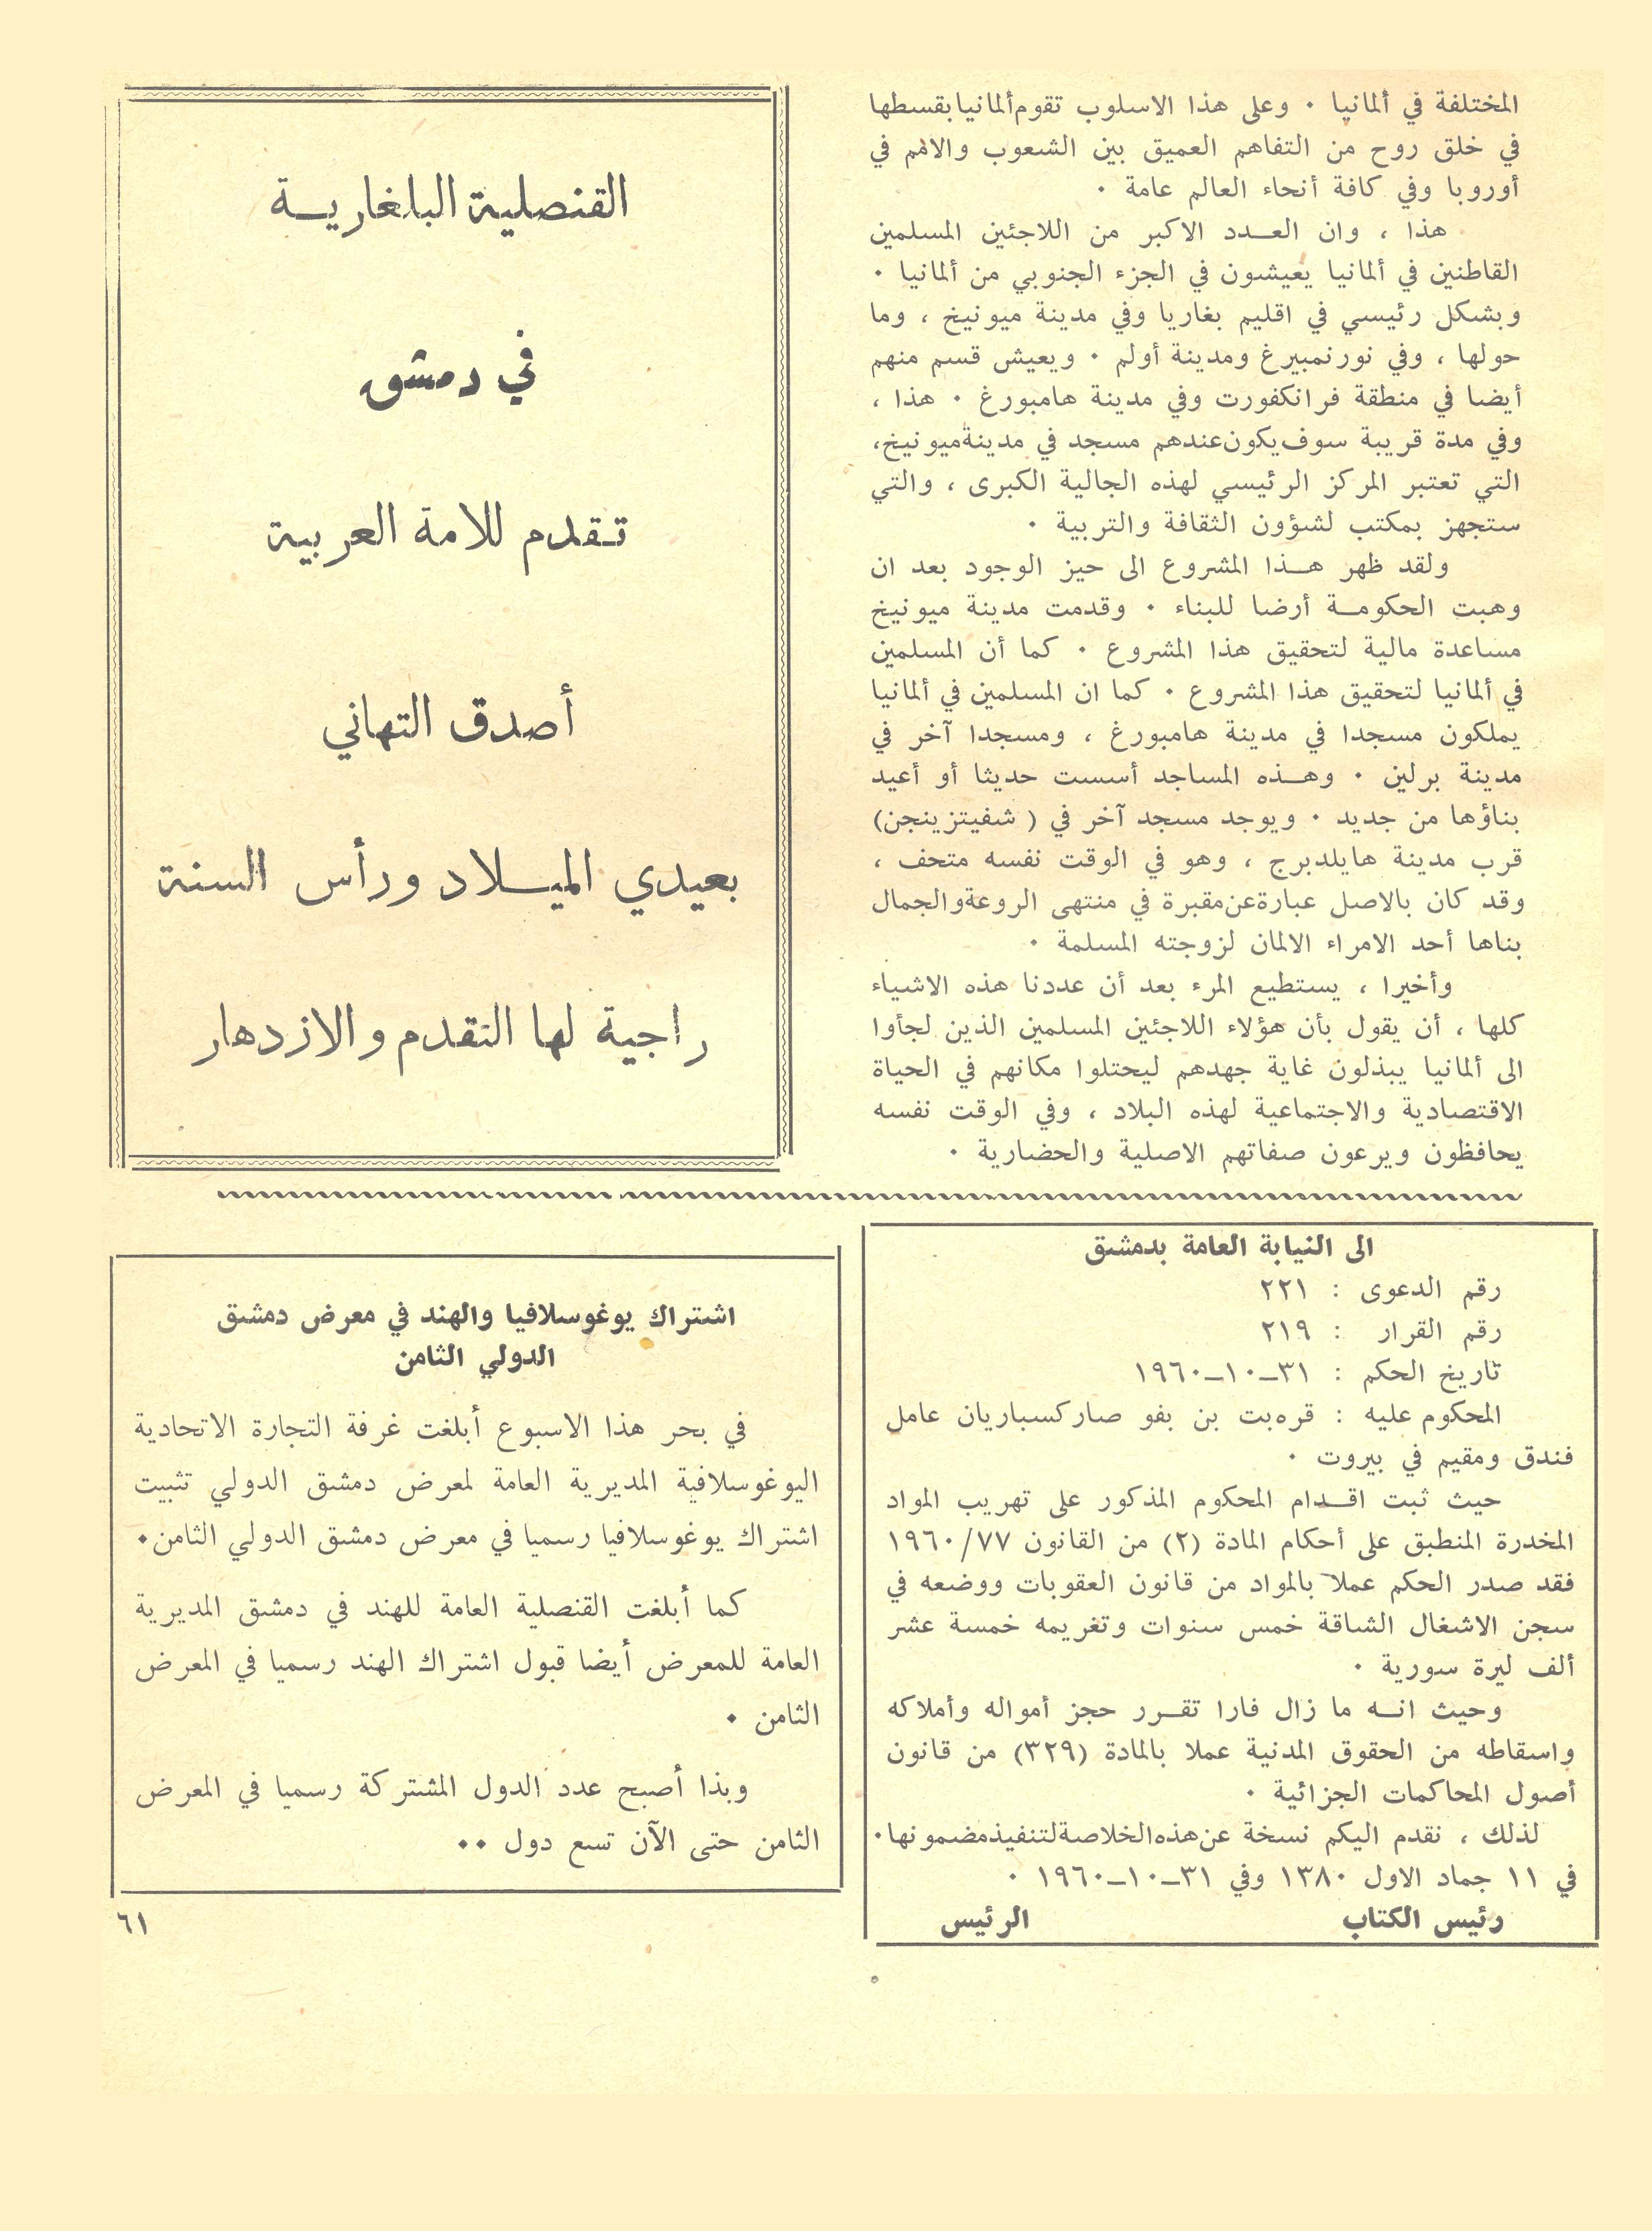 المختلفة في ألمانيا ٠ وعلى هذا الاسلوب تقوم ألمانيا بقسطها
في خلق روح من التفاهم العميق بين الشعوب والامم في
أوروبا وفي كافة أنحاء العالم عامة ٠
هذا ، وان العـدد الاكبر من اللاجئين المسلمين
القاطنين في ألمانيا يعيشون في الجزء الجنوبي من ألمانيا ٠
وبشكل رئيسي في اقليم بغاريا وفي مدينة ميونيخ ، وما
حولها ، وفي نورنمبيرغ ومدينة أولم ٠ ويعيش قسم منهم
أيضا في منطقة فرانكفورت وفي مدينة هامبورغ ٠ هذا ،
وفي مدة قريبة سوف يكون عندهم مسجد في مدينة ميونيخ،
التي تعتبر المركز الرئيسي لهذه الجالية الكبرى ، والتي
ستجهز بمكتب لشؤون الثقافة والتربية ٠
ولقد ظهر هـذا المشروع الى حيز الوجود بعد ان
وهبت الحكومـة أرضا للبناء ٠ وقدمت مدينة ميونيخ
مساعدة مالية لتحقيق هذا المشروع ٠ كما أن المسلمين
في ألمانيا لتحقيق هذا المشروع ٠ كما ان المسلمين في ألمانيا
يملكون مسجدا في مدينة هامبورغ ، ومسجدا آخر في
مدينة برلين ٠ وهـذه المساجد أسست حديثا أو أعيد
بناؤها من جديد ٠ ويوجد مسجد آخر في ( شفيتزينجن)
قرب مدينة هايلدبرج ، وهو في الوقت نفسه متحف ،
وقد كان بالاصل عبارة عن مقبرة في منتهى الروعة والجمال
بناها أحد الامراء الالمان لزوجته المسلمة ٠
وأخيرا ، يستطيع المرء بعد أن عددنا هذه الاشياء
كلها ، أن يقول بأن هؤلاء اللاجئين المسلمين الذين لجأوا
الى ألمانيا يبذلون غاية جهدهم ليحتلوا مكانهم في الحياة
الاقتصادية والاجتماعية لهذه البلاد ، وفي الوقت نفسه
يحافظون ويرعون صفاتهم الاصلية والحضارية ٠
القنصلية البلغاريـة
في دمشق
تـقدم للامة العربية
أصدق التهاني
بعيدي الميـلاد ورأس السنة
راجية لها التقدم والازدهار
الى النيابة العامة بدمشق
رقم الدعوى : ٢٢١
رقم القرار : ٢١٩
تاريخ الحكم : ٣١ــ١٠ــ١٩٦٠
المحكوم عليه : قره‌بت بن بفو صاركسباريان عامل
فندق ومقيم في بيروت ٠
حيث ثبت اقـدام المحكوم المذكور على تهريب المواد
المخدرة المنطبق على أحكام المادة (٢) من القانون ١٩٦٠/٧٧
فقد صدر الحكم عملا بالمواد من قانون العقوبات ووضعه في
سجن الاشغال الشاقة خمس سنوات وتغريمه خمسة عشر
ألف ليرة سورية ٠
وحيث انـه ما زال فارا تقـرر حجز أمواله وأملاكه
واسقاطه من الحقوق المدنية عملا بالمادة (٣٢٩) من قانون
أصول المحاكمات الجزائية ٠
لذلك ، نقدم اليكم نسخة عن هذه الخلاصة لتنفيذ مضمونها٠
في ١١ جماد الاول ١٣٨٠ وفي ٣١ــ١٠ــ١٩٦٠ ٠
رئيس الكتاب الرئيس
اشتراك يوغوسلافيا والهند في معرض دمشق
الدولي الثامن
في بحر هذا الاسبوع أبلغت غرفة التجارة الاتحادية
اليوغوسلافية المديرية العامة لمعرض دمشق الدولي تثبيت
اشتراك يوغوسلافيا رسميا في معرض دمشق الدولي الثامن٠
كما أبلغت القنصلية العامة للهند في دمشق المديرية
العامة للمعرض أيضا قبول اشتراك الهند رسميا في المعرض
الثامن ٠
وبذا أصبح عدد الدول المشتركة رسميا في المعرض
الثامن حتى الآن تسع دول ٠٠
٦١